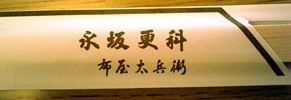 永坂更科
布屋太兵衛